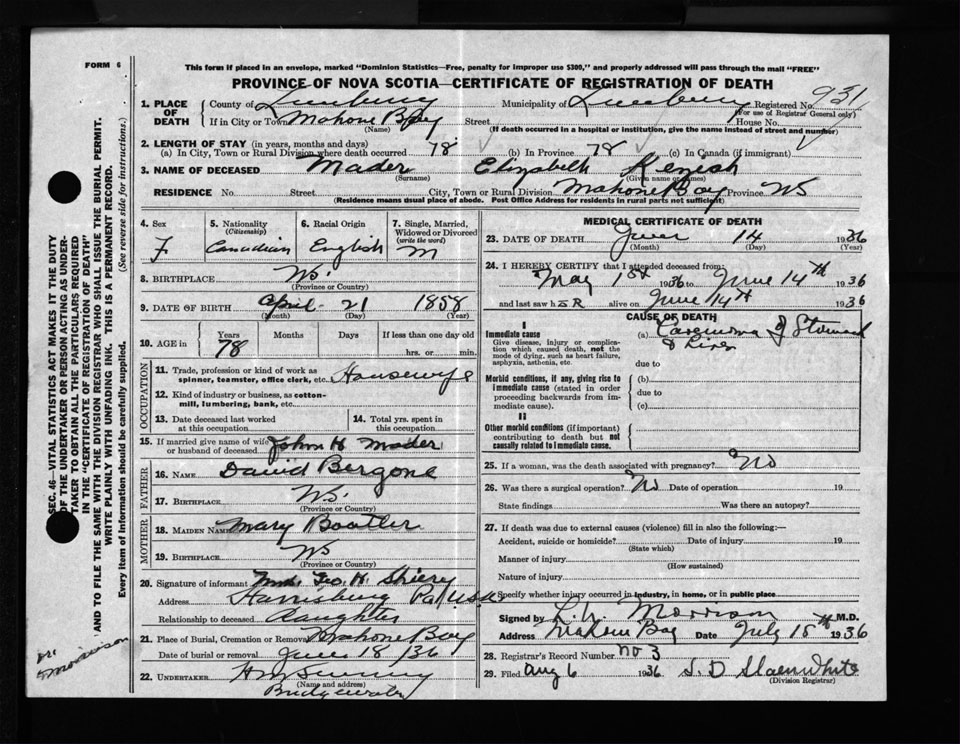 FORM 6
This form if placed in an envelope, marked "Dominion Statistics—Free, penalty for improper use $300," and properly addressed will pass through the mail "FREE"
PROVINCE OF NOVA SCOTIA—CERTIFICATE OF REGISTRATION OF DEATH
1. PLACE OF DEATH County of Lunenburg Municipality of Lunenburg Registered No. 931
(For use of Registrar General only)
If in City or Town Mahone Bay Street House No.
(Name) (If death occurred in a hospital or institution, give the name instead of street and number)
2. LENGTH OF STAY (in years, months and days)
(a) In City, Town or Rural Division where death occurred 78 (b) In Province 78 (c) In Canada (if immigrant)
3. NAME OF DECEASED Mader Elizabeth
(Surname) (Given name or names)
RESIDENCE No. Street City, Town or Rural Division Mahone Bay Province NS
(Residence means usual place of abode. Post Office Address for residents in rural parts not sufficient)
4. Sex F.
5. Nationality (Citizenship) Canadian
6. Racial Origin English
7. Single, Married, Widowed or Divorced (write the word) M
8. BIRTHPLACE NS.
(Province or Country)
9. DATE OF BIRTH April 21 1858
(Month) (Day) (Year)
10. AGE in Years 78 Months Days If less than one day old
hrs. or min.
OCCUPATION
11. Trade, profession or kind of work as spinner, teamster, office clerk, etc. Housewife
12. Kind of industry or business, as cotton-mill, lumbering, bank, etc.
13. Date deceased last worked at this occupation
14. Total yrs. spent in this occupation
15. If married give name of wife or husband of deceased John H Mader
FATHER
16. NAME David Bergone
17. BIRTHPLACE NS.
(Province or Country)
MOTHER
18. MAIDEN NAME Mary
19. BIRTHPLACE NS
(Province or Country)
20. Signature of informant Mrs. Geo. H. Shiery
Address Harrisburg Pa USA
Relationship to deceased daughter
21. Place of Burial, Cremation or Removal Mahone Bay
Date of burial or removal June 18/36
22. UNDERTAKER
(Name and address)
Bridgewater
MEDICAL CERTIFICATE OF DEATH
23. DATE OF DEATH June 14 1936
(Month) (Day) (Year)
24. I HEREBY CERTIFY that I attended deceased from:
May 1st 1936 to June 14th 1936
and last saw h ER alive on June 14th 1936
CAUSE OF DEATH
I
Immediate cause (a) Carcinoma of Stomach
& Liver
Give disease, injury or complication which caused death, not the mode of dying, such as heart failure, asphyxia, asthenia, etc.
due to
Morbid conditions, if any, giving rise to immediate cause (stated in order proceeding backwards from immediate cause).
(b)
due to
(c)
II
Other morbid conditions (if important) contributing to death but not causally related to immediate cause.
25. If a woman, was the death associated with pregnancy? No
26. Was there a surgical operation? No Date of operation 19
State findings Was there an autopsy?
27. If death was due to external causes (violence) fill in also the following:—
Accident, suicide or homicide? Date of injury 19
(State which)
Manner of injury
(How sustained)
Nature of injury
Specify whether injury occurred in industry, in home, or in public place
Signed by Morrison M.D.
Address Mahone Bay Date July 15th 1936
28. Registrar's Record Number no 3
29. Filed Aug 6 1936 S. D Slaenwhite
(Division Registrar)
SEC. 46—VITAL STATISTICS ACT MAKES IT THE DUTY
OF THE UNDERTAKER OR PERSON ACTING AS UNDER-
TAKER TO OBTAIN ALL THE PARTICULARS REQUIRED
IN THE "CERTIFICATE OF REGISTRATION OF DEATH"
AND TO FILE THE SAME WITH THE DIVISION REGISTRAR WHO SHALL ISSUE THE BURIAL PERMIT.
WRITE PLAINLY WITH UNFADING INK. THIS IS A PERMANENT RECORD.
Every item of Information should be carefully supplied. (See reverse side for instructions.)
Morrison